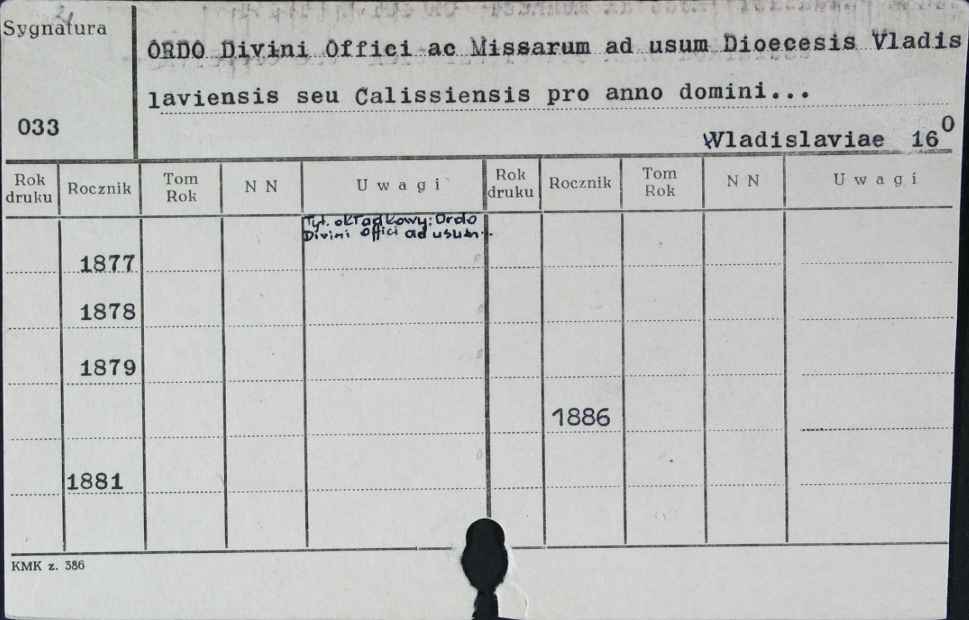 Sygnatura
ORDO Divini Offici ac Missarum ad usum Dioecesis Vladis
laviensis seu Calissiensis pro anno domini...
033
Wladislaviae 16⁰
Rok druku Rocznik Tom Rok N N Uwagi Rok druku Rocznik Tom Rok N N Uwagi
Tyt. okładkowy: Ordo
Divini Offici ad usum..
1877
1878
1879
1886
1881
KMK z. 386